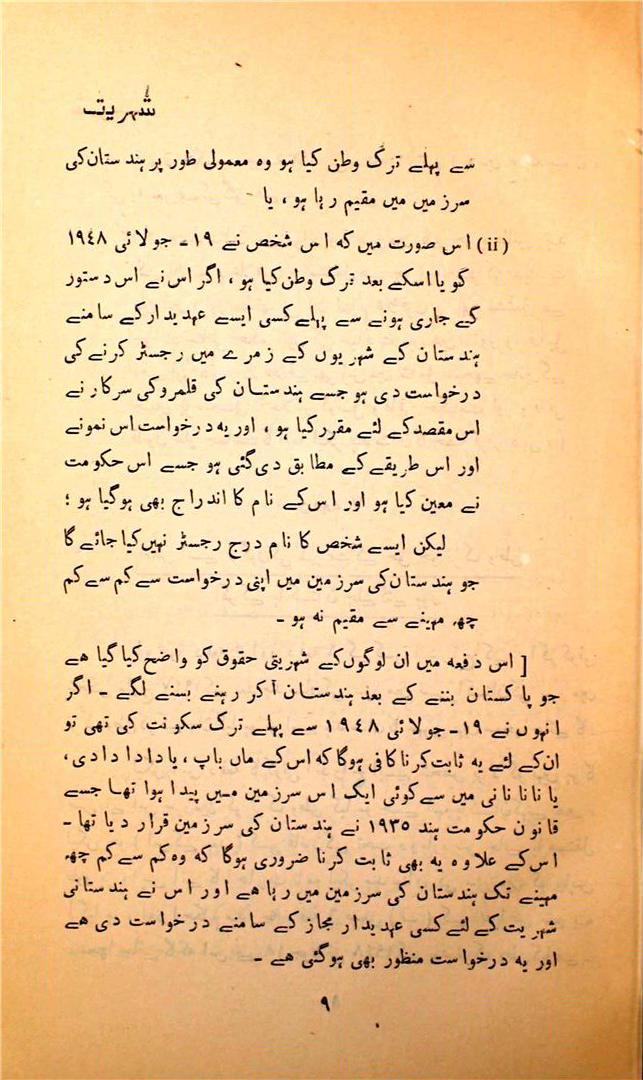 شہریت
سے پہلے ترک وطن کیا ہو وہ معمولی طور پر ہندستان کی
سرزمیں میں مقیم رہا ہو ، یا
(ii) اس صورت میں کہ اس شخص نے ۱۹- جولائی ۱۹٤۸
کو یا اسکے بعد ترک وطن کیا ہو ، اگر اس نے اس دستور
کے جاری ہونے سے پہلے کسی ایسے عہدیدار کے سامنے
ہندستان کے شہریوں کے زمرے میں رجسٹر کرنے کی
درخواست دی ہو جسے ہندستان کی قلمرو کی سرکار نے
اس مقصد کے لئے مقرر کیا ہو ، اور یه درخواست اس نمونے
اور اس طریقے کے مطابق دی گئی ہو جسے اس حکومت
نے معین کیا ہو اور اس کے نام کا اندراج بھی ہوگیا ہو ؛
لیکن ایسے شخص کا نام درج رجسٹر نہیں کیا جائے گا
جو ہندستان کی سرزمین میں اپنی درخواست سے کم سے کم
چھ مہینے سے مقیم نه ہو ۔
[ اس دفعه میں ان لوگوں کے شہریتی حقوق کو واضح کیا گیا ھے
جو پاکستان بننے کے بعد ہندستان آکر رہنے بسنے لگے ۔ اگر
انہوں نے ۱۹- جولائی ۱۹٤۸ سے پہلے ترک سکونت کی تھی تو
ان کے لئے یه ثابت کرنا کافی ہوگا که اس کے ماں باپ ، یا دادا دادی ،
یا نانا نانی میں سے کوئی ایک اس سرزمین میں پیدا ہوا تھا جسے
قانون حکومت ہند ۱۹۳۵ نے ہندستان کی سرزمین قرار دیا تھا ۔
اس کے علاوہ یه بھی ثابت کرنا ضروری ہوگا که وہ کم سے کم چھ
مہینے تک ہندستان کی سرزمین میں رہا ھے اور اس نے ہندستانی
شہریت کے لئے کسی عہدیدار مجاز کے سامنے درخواست دی ھے
اور یه درخواست منظور بھی ہوگئی ھے ۔
۹